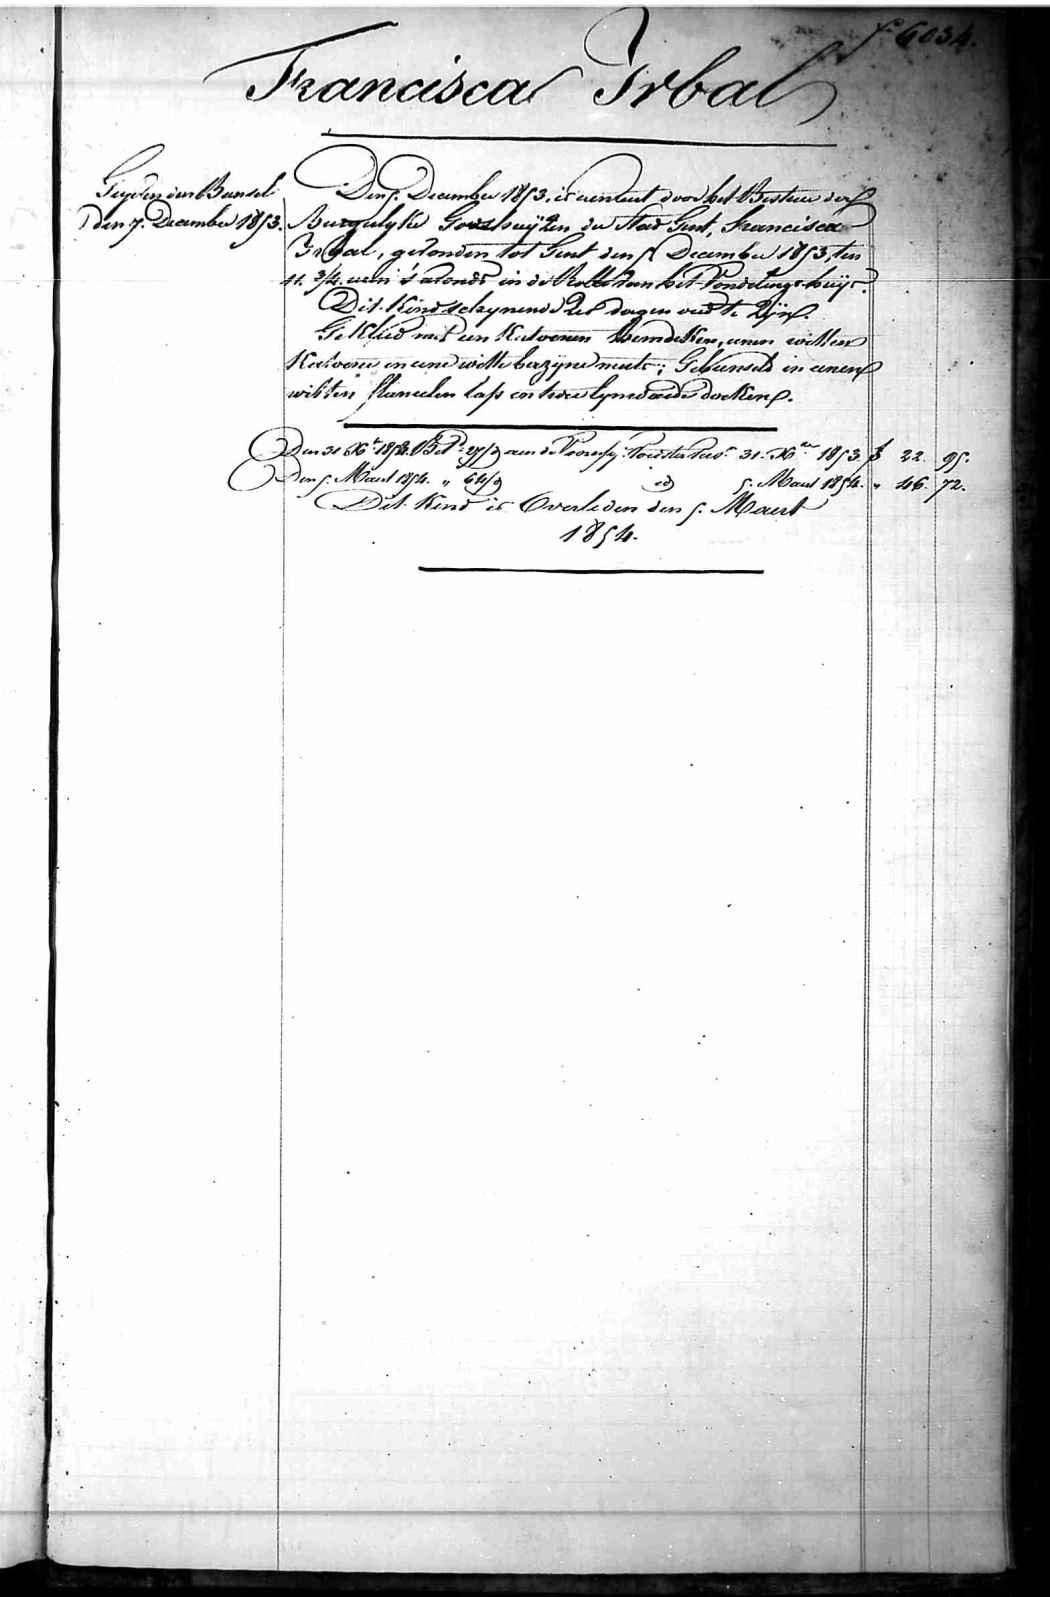 f° 6034.
Francisca Irbal
den Bussel
den 7. December 1853.
Den 5. December 1853. is aenveert door het Bestuer der
Burgerlyke Godshuyzen der Stad Gent, Francisca
Irbal, gevonden tot Gent den 5 December 1853, ten
11. 3/4. uren 's avonds in de Rolle van het Vondelings-huys.
Dit Kind schynende Zes dagen oud te Zyn.
Gekleed met een Katoenen Hemdeken, eenen witten
Katoene en eene witte bazyne muts; Gebunseld in eenen
witten flanellen laps en twee lynwaede doeken.
Den 31 Xbr 1853. Bet. 27/9 aen de Voorsz. 31. Xbre 1853. f 22. 95.
Den 5. Maert 1854. " 64/9 id 5. Maert 1854. " 46. 72.
Dit Kind is Overleden den 5. Maert
1854.